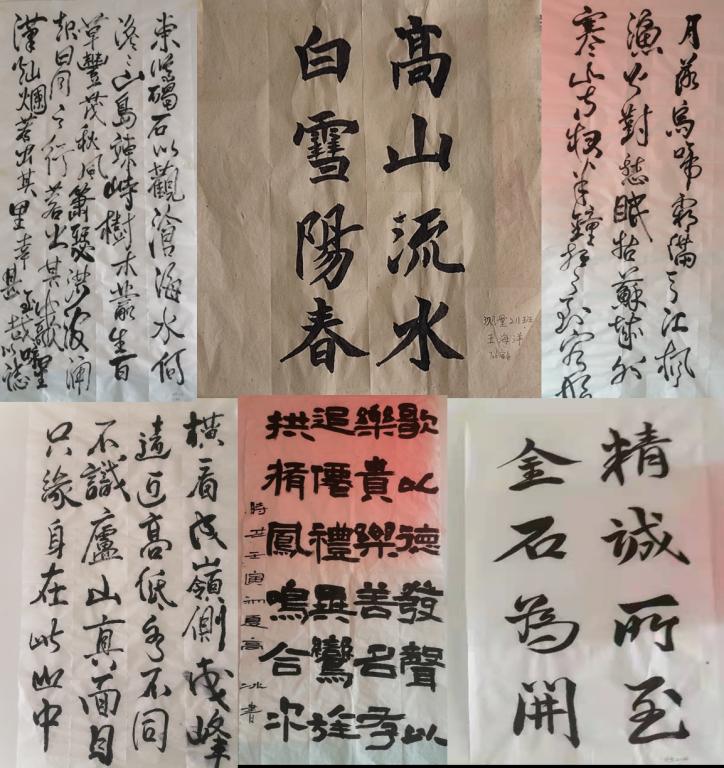 東臨碣石以觀滄海水何
澹〻山島竦峙樹木叢生百
草豐茂秋風蕭瑟洪波涌
起日月之行若出其
漢燦爛若出其里幸甚
至哉歌以詠志
高山流水
白雪陽春
211班
王海洋
月落烏啼霜滿天江楓
漁火對愁眠姑蘇城外
寒山寺夜半鐘聲到客船
橫看成嶺側成峰
遠近高低各不同
不識廬山真面目
只緣身在此山中
歌以德發聲以
樂貴樂善名存
追僊禮異鸞旌
拱揖鳳鳴合次
時在壬寅初夏高冰書
精誠所至
金石為開